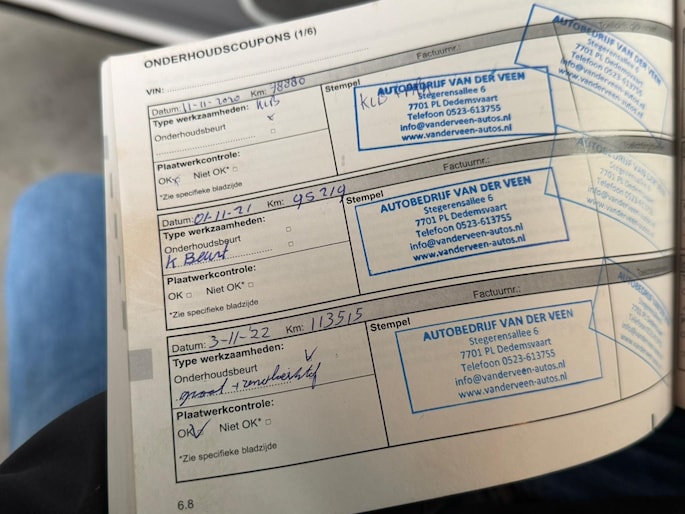 ONDERHOUDSCOUPONS (1/6)
VIN:
Factuurnr.:
Datum: 11-11-2020 Km: 78980
Stempel
Type werkzaamheden: KLB
Onderhoudsbeurt
Plaatwerkcontrole:
OK Niet OK*
*Zie specifieke bladzijde
KLB
AUTOBEDRIJF VAN DER VEEN
Stegerensallee 6
7701 PL Dedemsvaart
Telefoon 0523-613755
info@vanderveen-autos.nl
www.vanderveen-autos.nl
AUTOBEDRIJF VAN DER VEEN
Stegerensallee 6
7701 PL Dedemsvaart
Telefoon 0523-613755
info@vanderveen-autos.nl
www.vanderveen-autos.nl
Datum: 01-11-21 Km: 95219
Stempel
Factuurnr.:
Type werkzaamheden:
Onderhoudsbeurt
K Beurt
Plaatwerkcontrole:
OK Niet OK*
*Zie specifieke bladzijde
AUTOBEDRIJF VAN DER VEEN
Stegerensallee 6
7701 PL Dedemsvaart
Telefoon 0523-613755
info@vanderveen-autos.nl
www.vanderveen-autos.nl
Datum: 3-11-22 Km: 113515
Stempel
Factuurnr.:
Type werkzaamheden:
Onderhoudsbeurt
groot +
Plaatwerkcontrole:
OK Niet OK*
*Zie specifieke bladzijde
AUTOBEDRIJF VAN DER VEEN
Stegerensallee 6
7701 PL Dedemsvaart
Telefoon 0523-613755
info@vanderveen-autos.nl
www.vanderveen-autos.nl
6.8